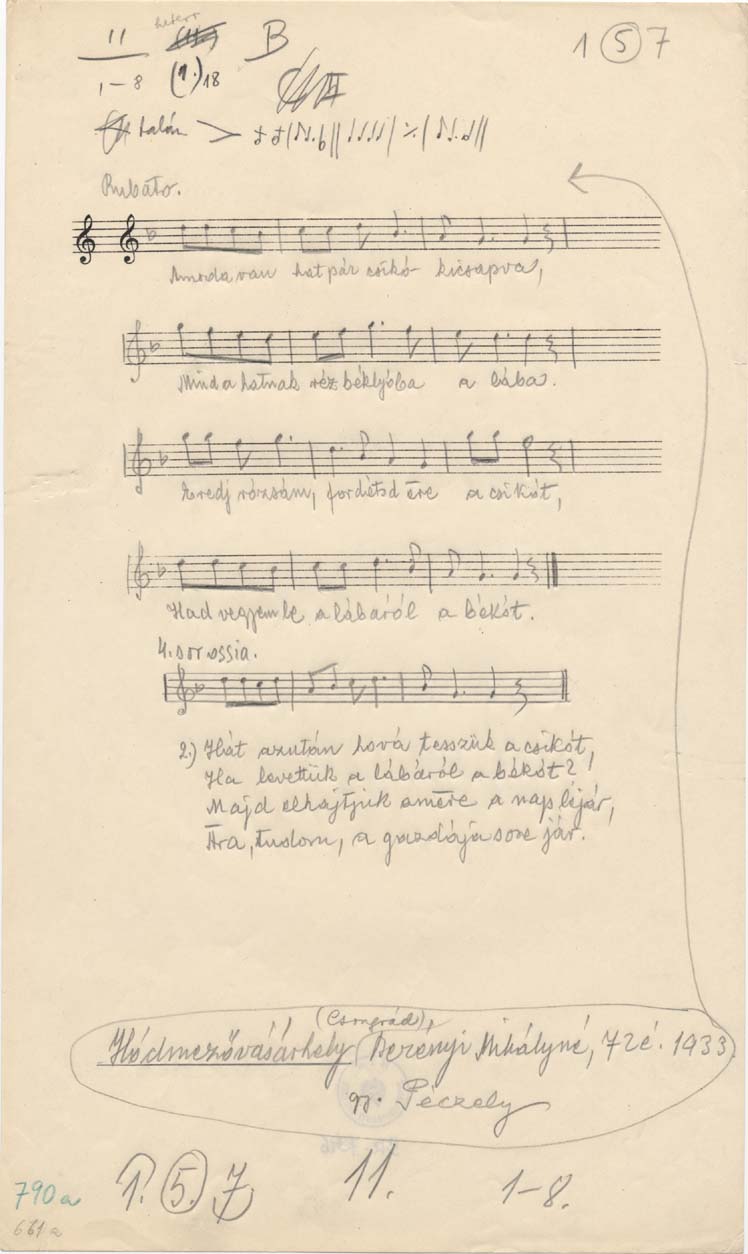 11 B 1 5 7
1-8 (1.) 18
Rubato.
Amoda van hat pár csikó kicsapva,
Mind a hatnak réz béklyóba a lába.
Eredj rózsám, fordítsd ēre a csikót,
Had vegyem le a lábáról a békót.
4. sor ossia.
2.) Hát azután hová tesszük a csikót,
Ha levettük a lábáról a békót?!
Majd elhajtjuk amēre a nap lejár,
Āra, tudom, a gazdája sose jár.
(Csongrád),
Hódmezővásárhely Derényi Mihályné, 72 é. 1933
gy. Péczely
790a 1. 5. 7 11. 1-8.
661a